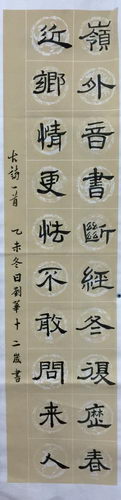 嶺外音書斷經冬復歷春
近鄉情更怯不敢問来人
古詩一首 乙未冬日劉華十二歲書